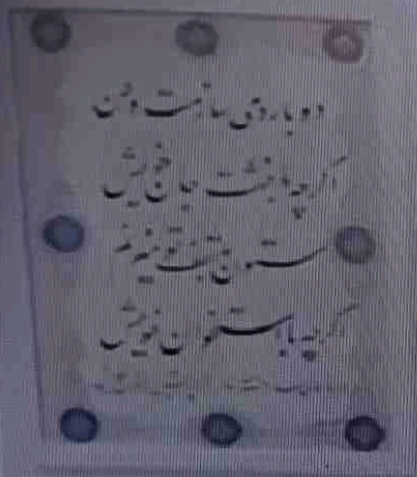 دوباره می سازمت وطن
اگرچه با خشت جان خویش
ستون به سقف تو میزنم
اگرچه با استخوان خویش